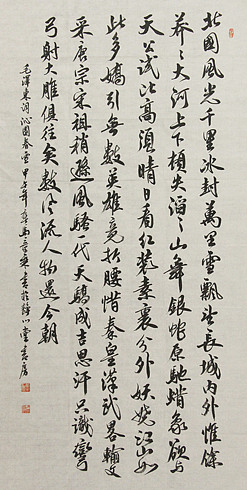 北國風光千里冰封萬里雪飄望長城内外惟餘
莽〻大河上下頓失滔〻山舞銀蛇原馳蠟象欲与
天公試比高須晴日看紅裝素裹分外妖嬈江山如
此多嬌引無數英雄競折腰惜秦皇漢武略輸文
采唐宗宋祖稍遜風騷一代天驕成吉思汗只識彎
弓射大雕俱往矣數風流人物還今朝
毛澤東詞沁園春雪 甲午年 書於 堂書房